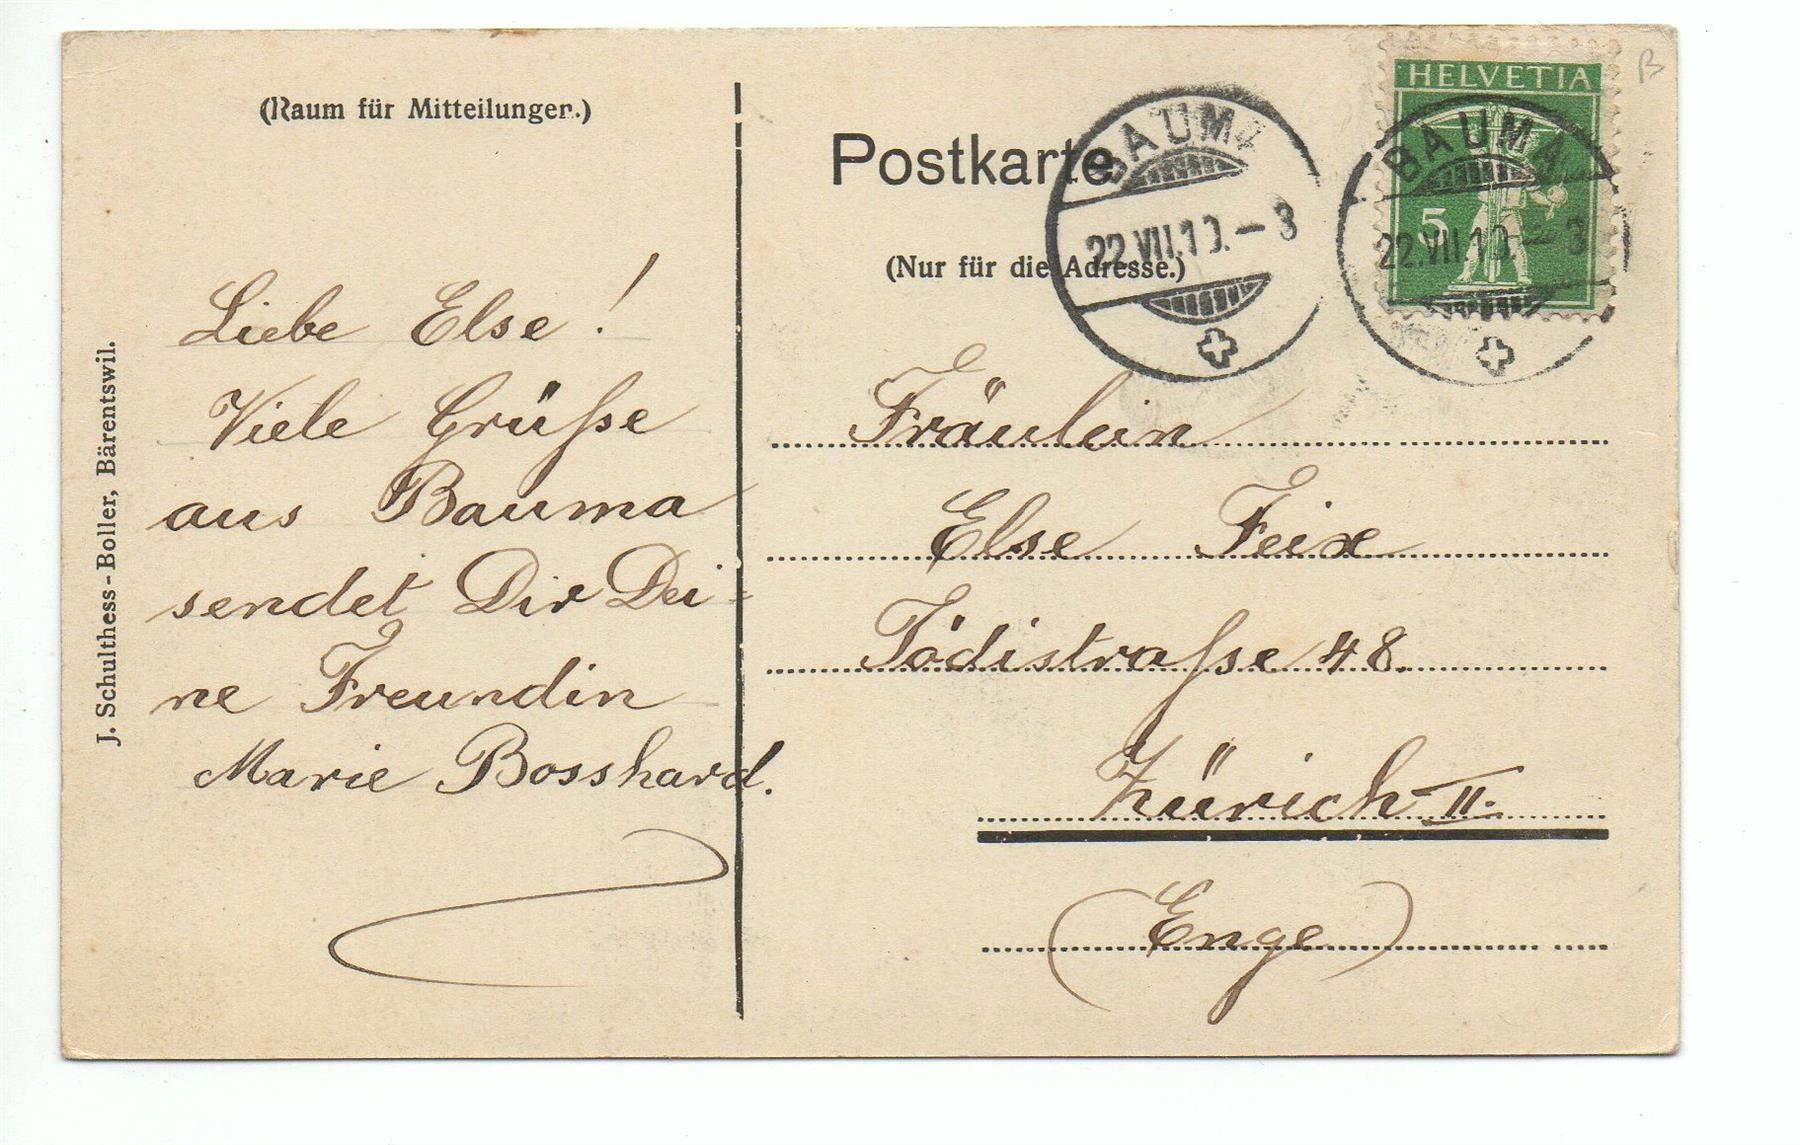 (Raum für Mitteilungen.)
Liebe Else!
Viele Grüsse
aus Bauma
sendet Dir Dei-
ne Freundin
Marie Bosshard.
J. Schulthess-Boller, Bärentswil.
Postkarte
(Nur für die Adresse.)
BAUMA
22.VII.10.-8
HELVETIA
5
BAUMA
22.VII.10.-8
B
Fräulein
Else Feix
Tödistrasse 48.
Zürich II.
(Enge)